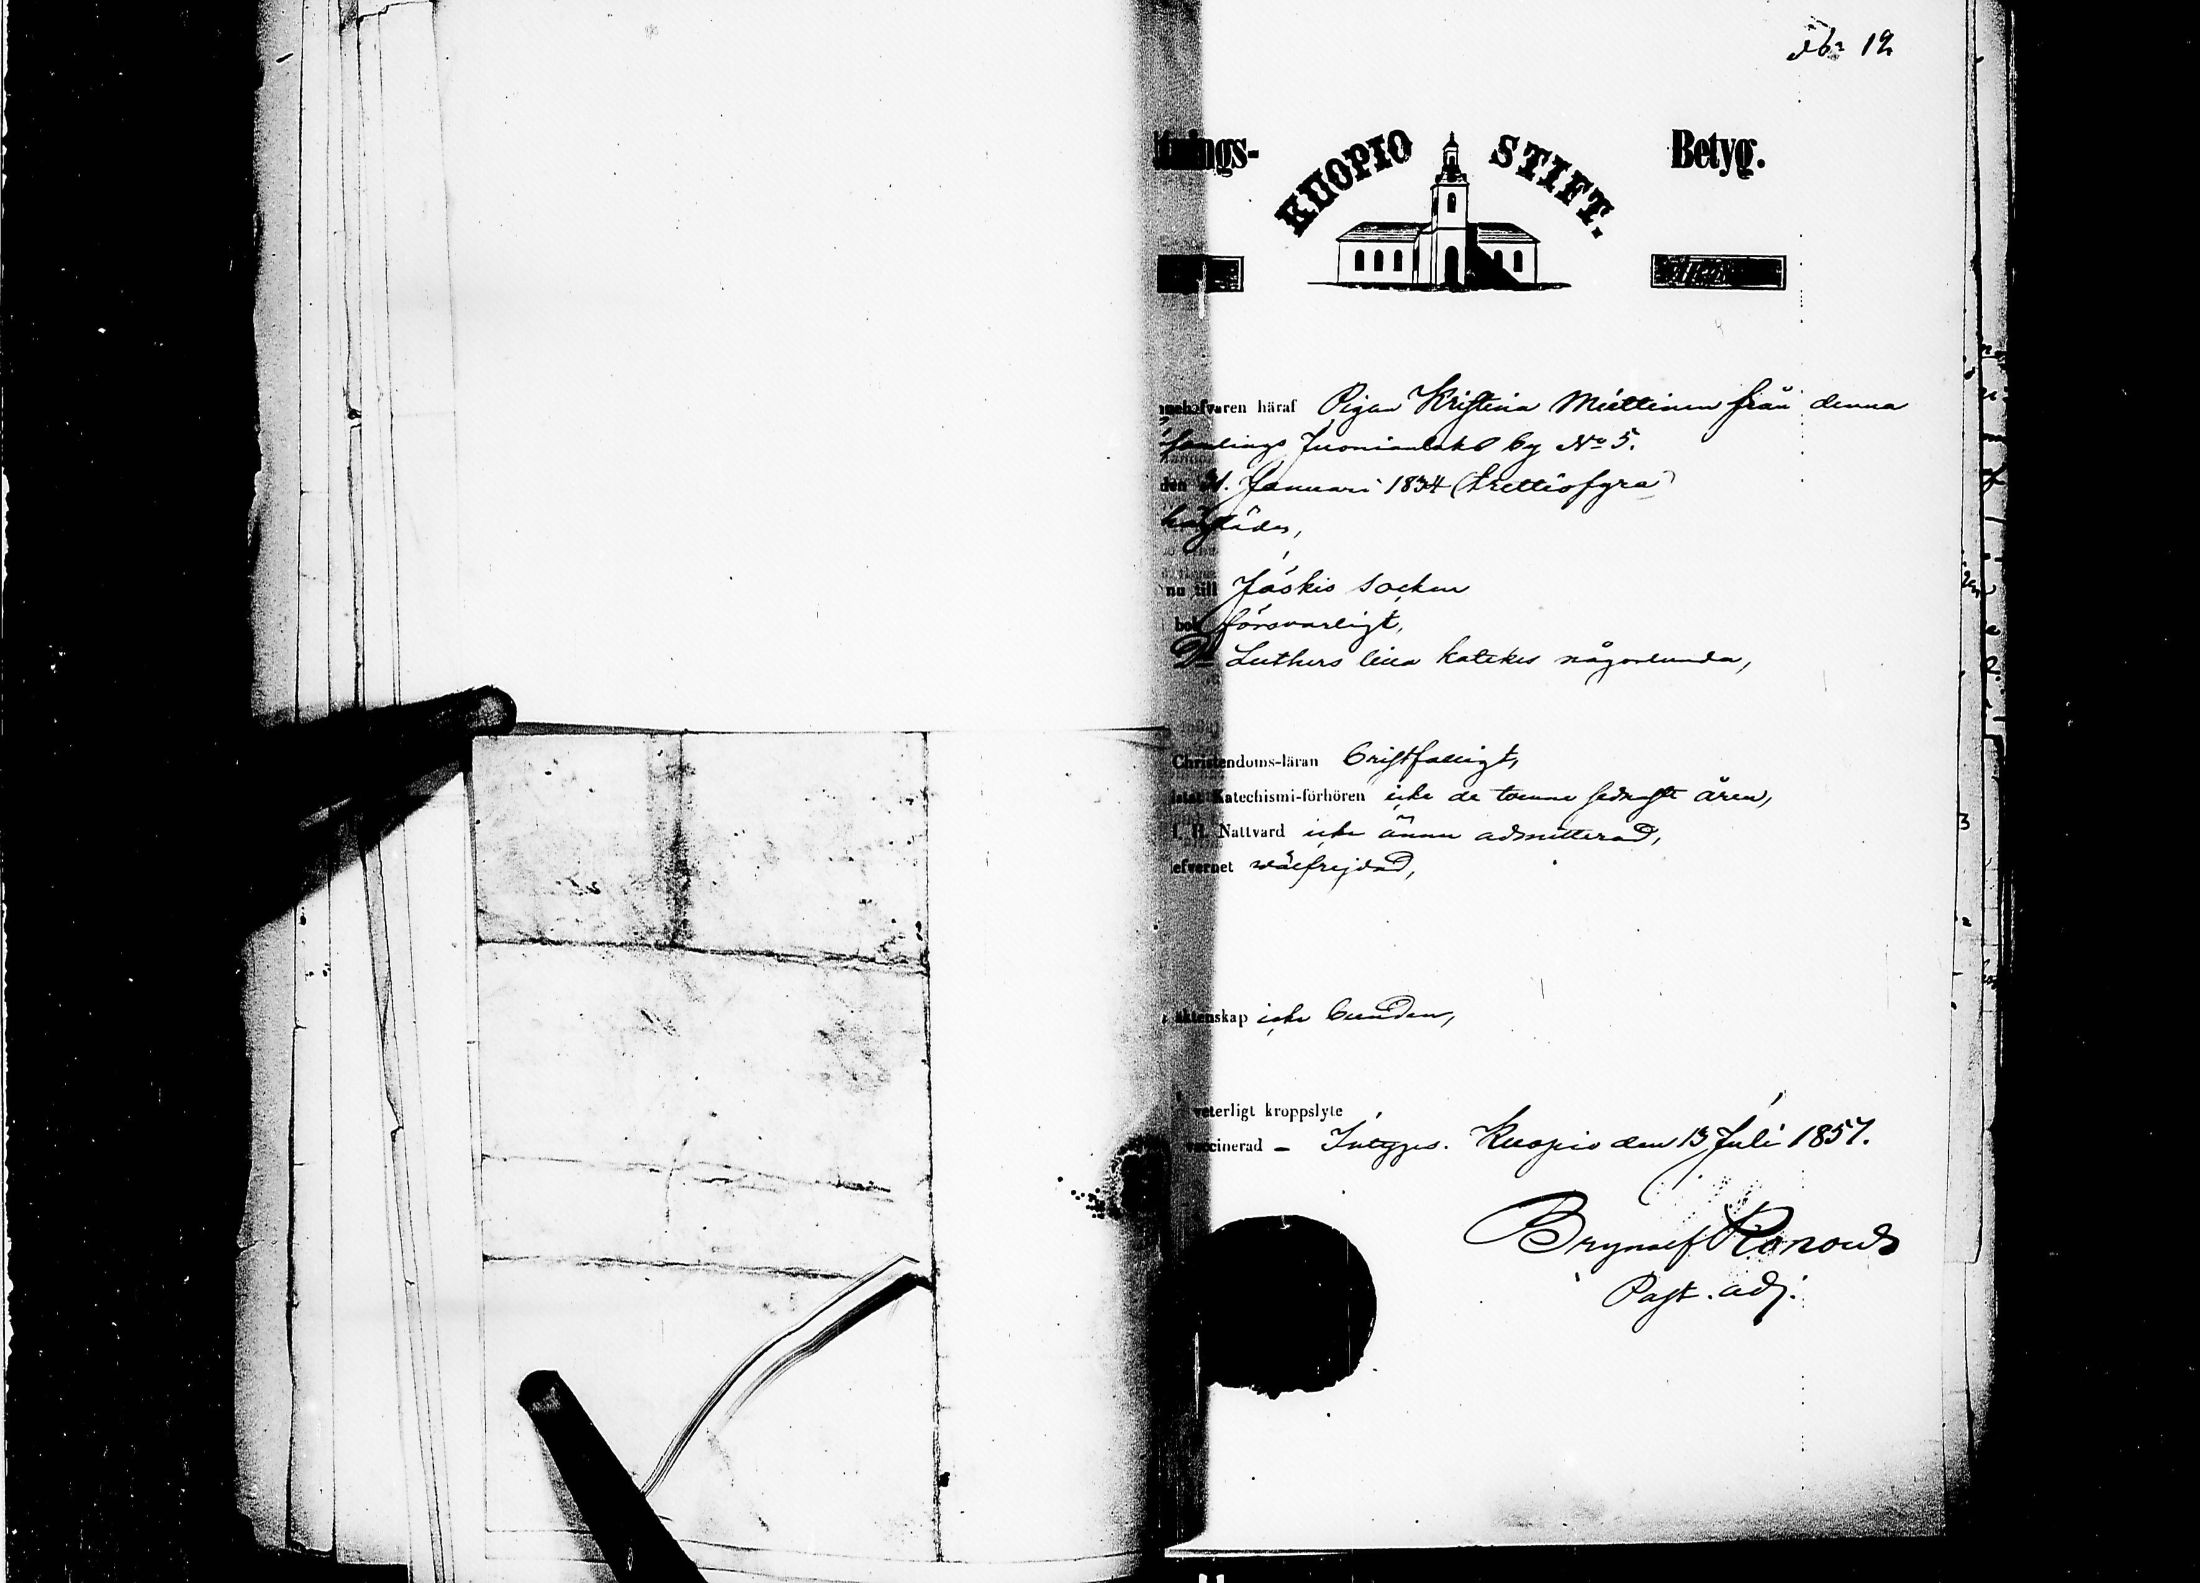 No 12
KUOPIO STIFT.
Betyg.
häraf Pigan Kristina Miettinen från denna
by No 5.
den 21. Januari 1834 (trettiofyra)
till Jäskis socken
bok försvarligt,
Dr Luthers lilla katekes någorlunda,
Christendoms-läran bristfälligt,
Katechismi-förhören icke de tvenne sednaste åren,
I. H. Nattvard icke ännu admitterad,
efvernet wälfrejdad,
äktenskap icke bunden,
veterligt kroppslyte
vaccinerad – Intygges. Kuopio den 13 Juli 1857.
Brynolf
Past. adj.